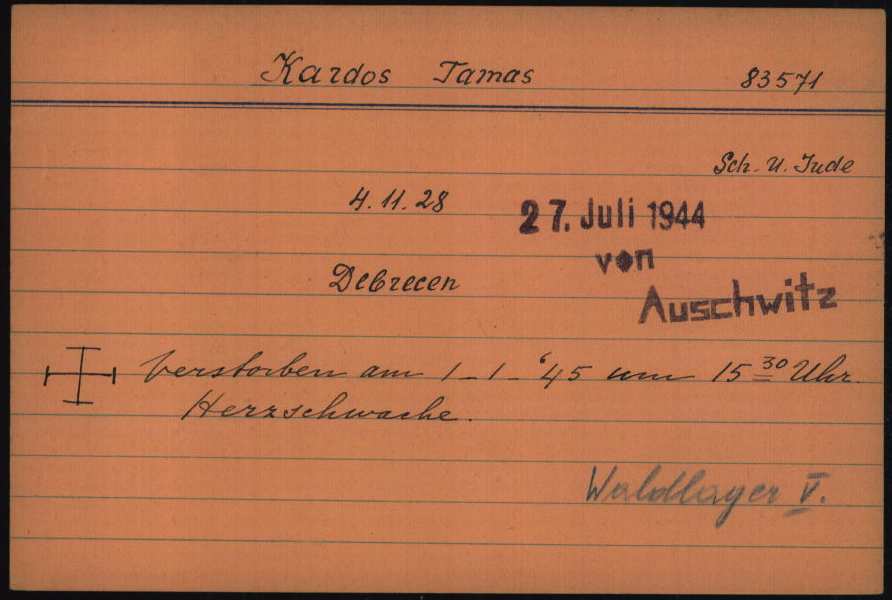 Kardos Tamas 83571
Sch. U. Jude
4.11.28
27. Juli 1944
von
Debrecen
Auschwitz
Verstorben am 1-1-'45 um 15 30 Uhr.
Herzschwache.
Waldlager V.